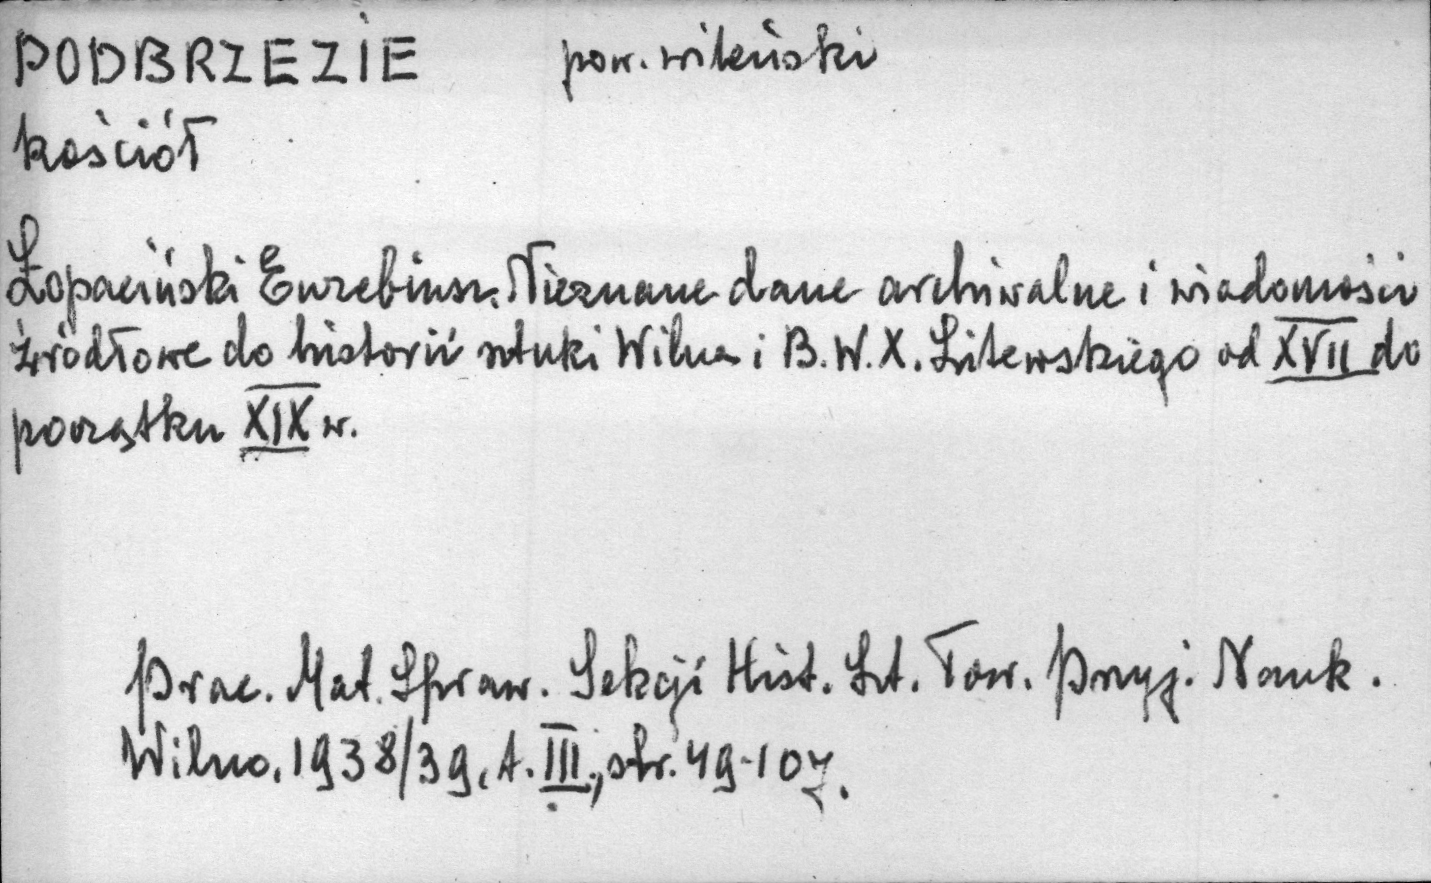 PODBRZEZIE pow. wileński
kościół
Łopaciński Euzebiusz. Nieznane dane archiwalne i wiadomości
źródłowe do historii sztuki Wilna i B. W. X. Litewskiego od XVII do
początku XIX w.
Prac. Mat. Spraw. Sekcji Hist. Szt. Tow. Przyj. Nauk.
Wilno, 1938/39, t. III, str. 49-107.